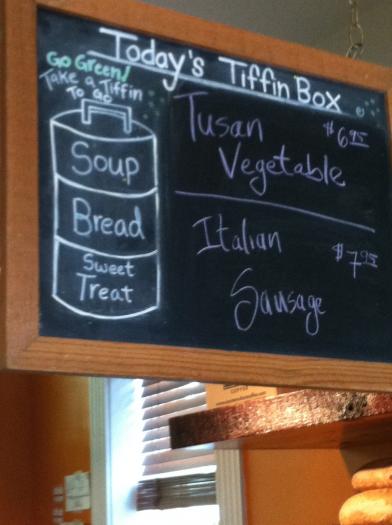 Today's Tiffin Box
Go Green!
Take a Tiffin
To Go
Soup
Bread
Sweet
Treat
Tusan $6.95
Vegetable
Italian $7.95
Sausage